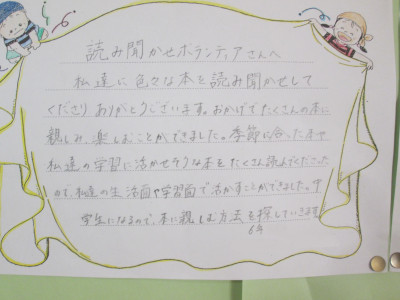 読み聞かせボランティアさんへ
私達に色々な本を読み聞かせして
くださりありがとうございます。おかげでたくさんの本に
親しみ、楽しむことができました。季節に合った本や
私達の学習に活かせそうな本をたくさん読んでくださった
ので、私達の生活面や学習面で活かすことができました。中
学生になるので、本に親しむ方法を探していきます